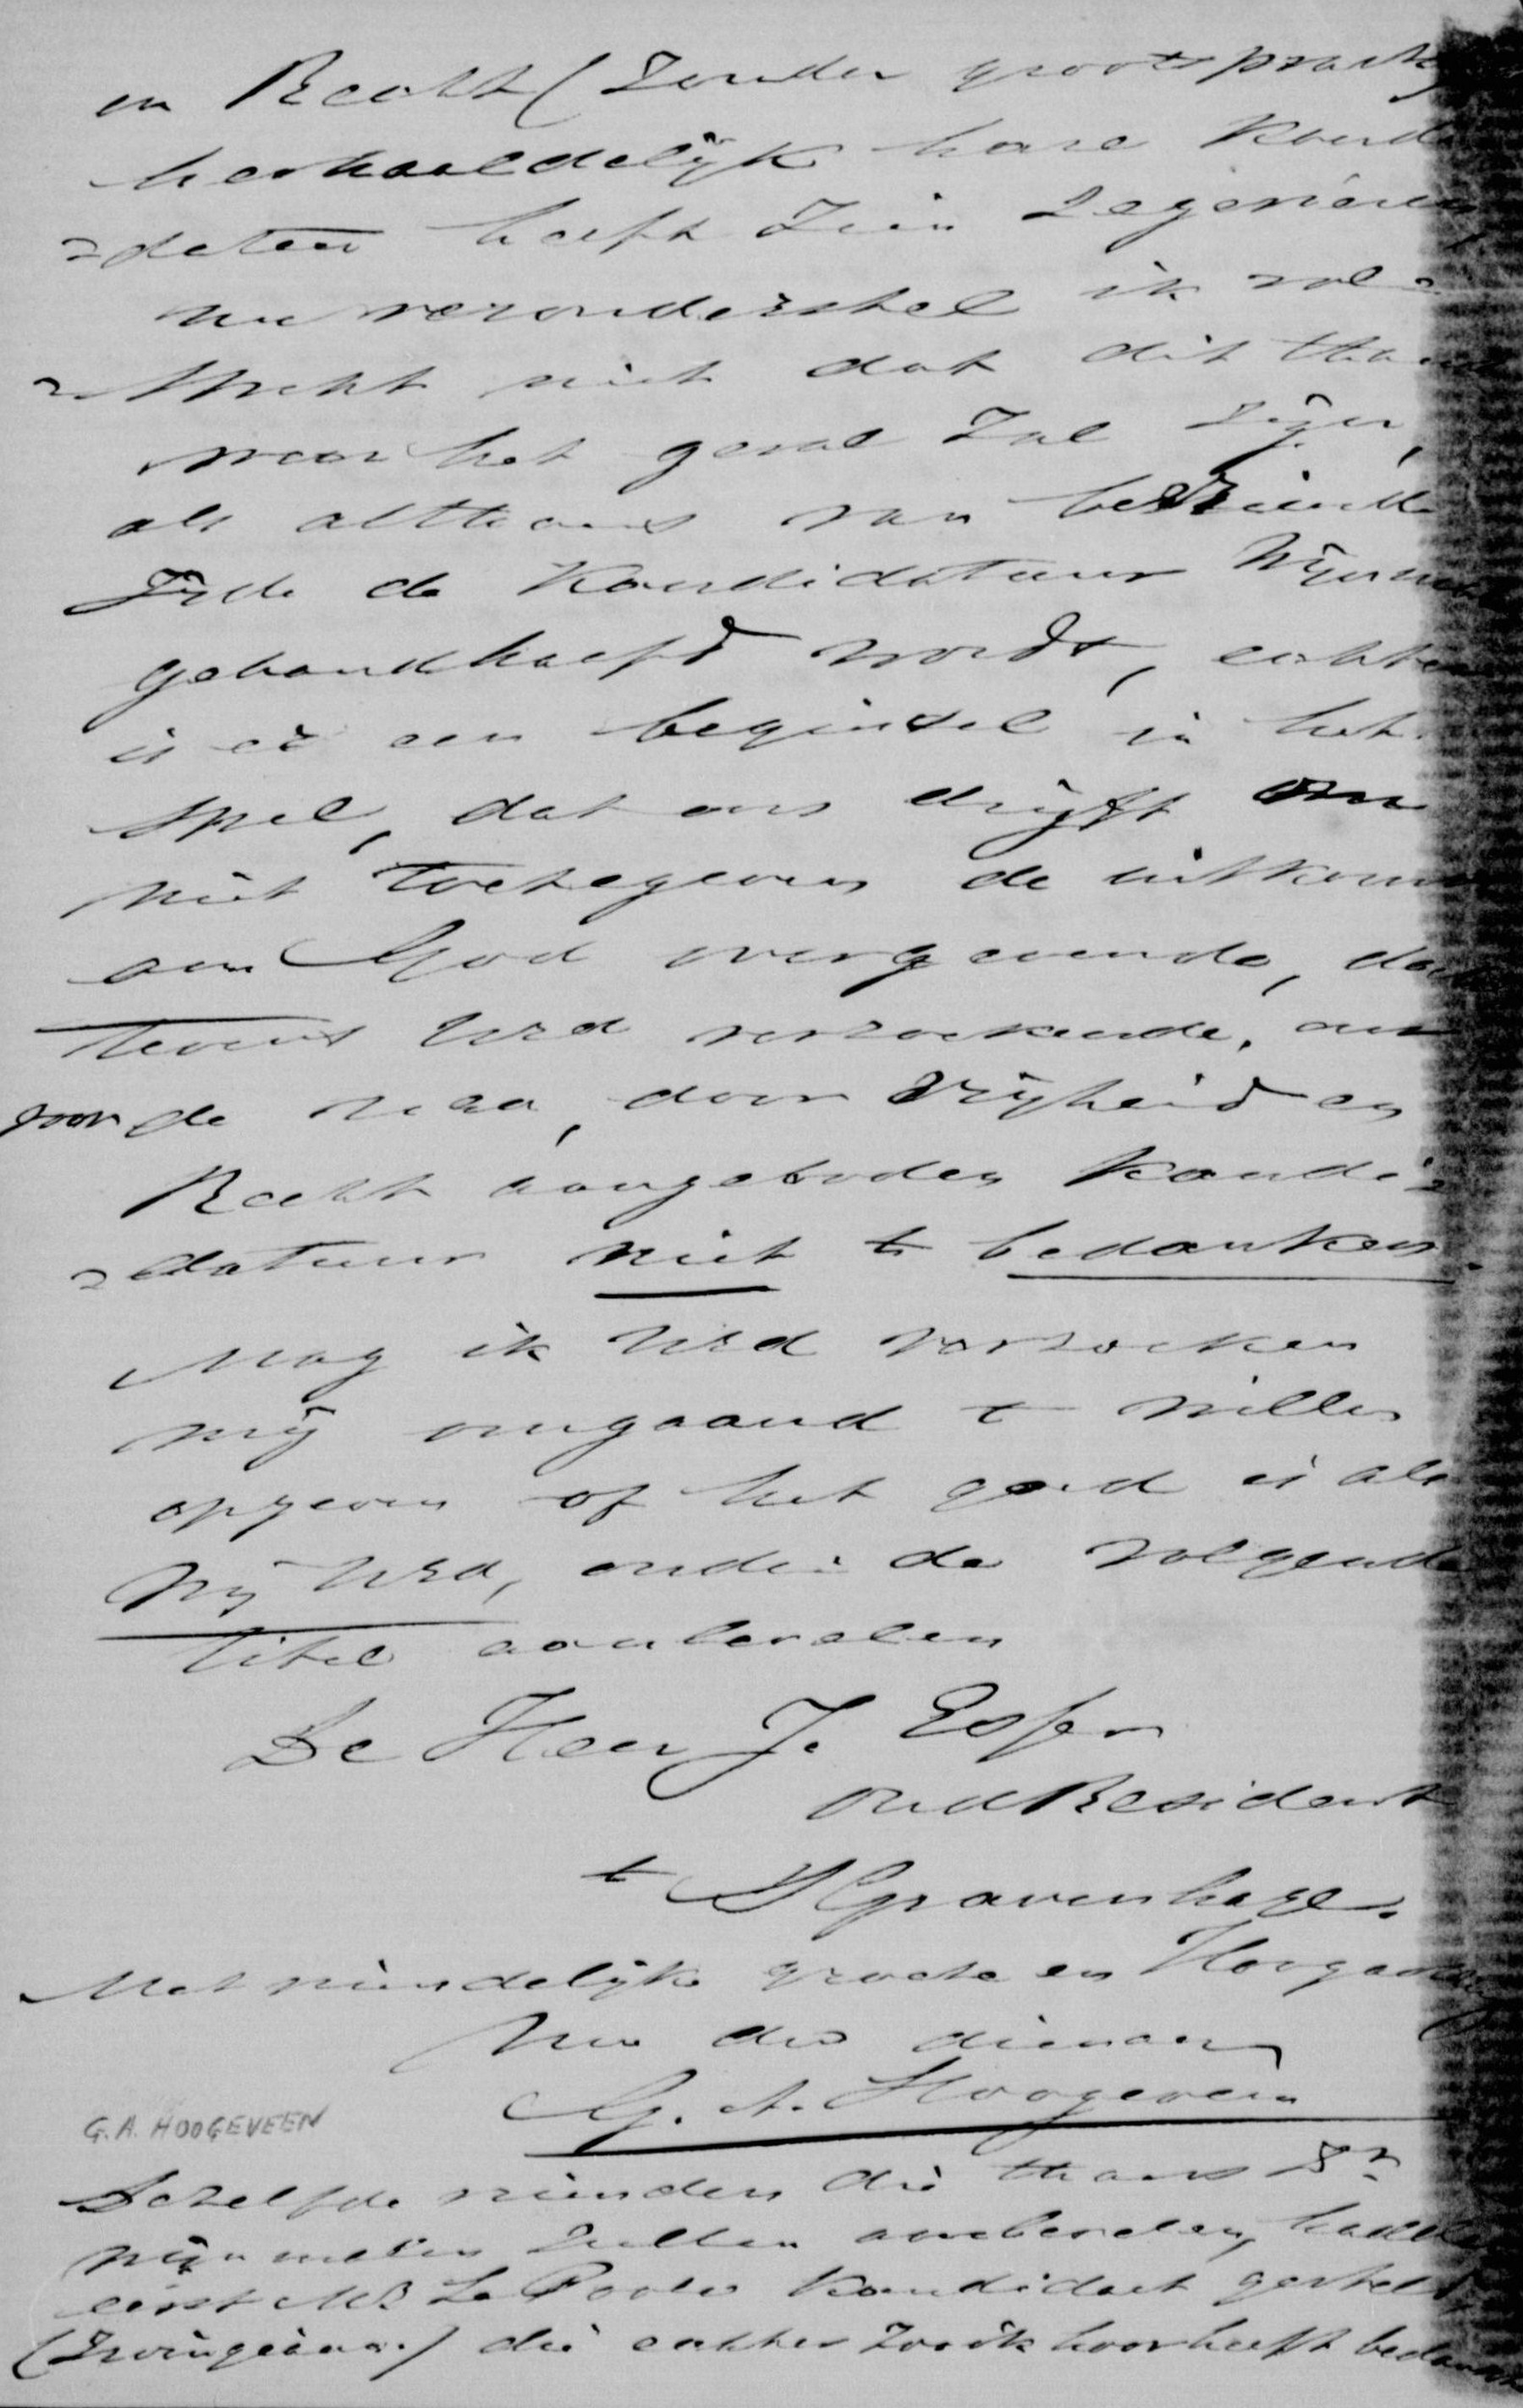 en Recht (zonder grootspraak
herhaaldelijk hare kandi
=daten heeft zien zegevieren
nu veronderstel ik vol=
=strekt niet dat dit thans
weer het geval zal zijn,
als althans van bevriende
zijde de kandidatuur Wijnmalen
gehandhaafd wordt, echter
is er een beginsel in het
spel, dat ons drijft om
niet toetegeven de uitkomst
aan God overgevende, doch
tevens UEd verzoekende, om
voor de , door Vrijheid en
Recht aangeboden kandi=
=datuur niet te bedanken.
Mag ik UEd verzoeken
mij omgaand te willen
opgeven of het goed is als
wij UEd, onder de volgende
titel aanbevelen
De Heer J. Esser
oud Resident
te S Gravenhage.
Met vriendelijke groete en Hoogachting
Uw dw dienaar
G. A. Hoogeveen
G.A. HOOGEVEEN
Dezelfde vrienden die thans Dr
Wijnmalen zullen aanbevelen, hadden
eerst Mr Le Poole kandidaat gesteld,
(Irvingiaan) die echter zooik hoor heeft bedankt